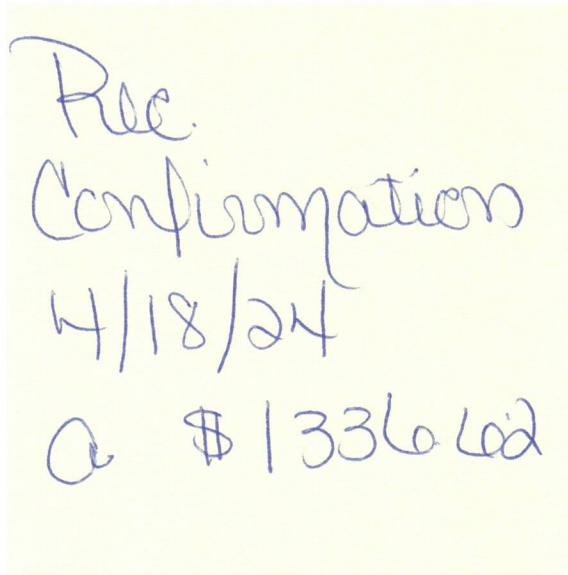 Rec.
Confirmation
4/18/24
a $1336.62